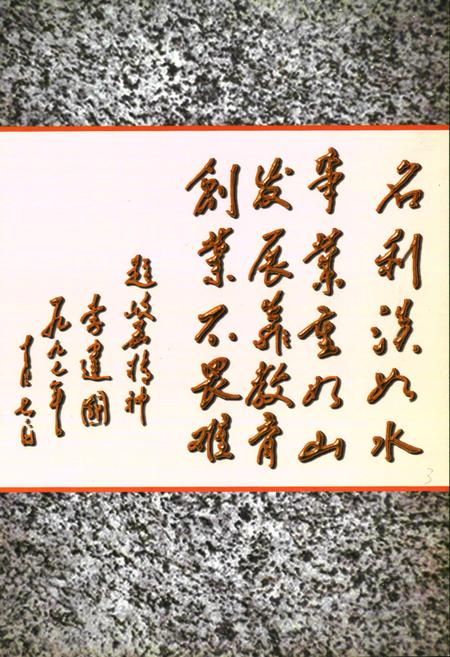 名利淡如水
事業重如山
发展靠教育
創業不畏难
题精神
李建國
一九九年
十月七日
3